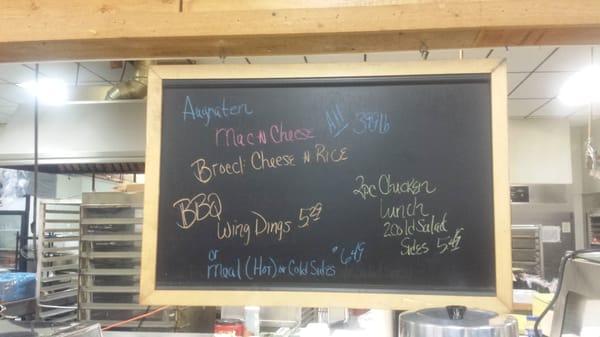 Augraten
Mac N Cheese All 3 99 lb
Brocl. Cheese N Rice
BBQ
Wing Dings 5 29
or
Meal (Hot) or Cold Sides $ 6 49
2pc Chicken
Lunch
2 Cold Salad
Sides 5 49